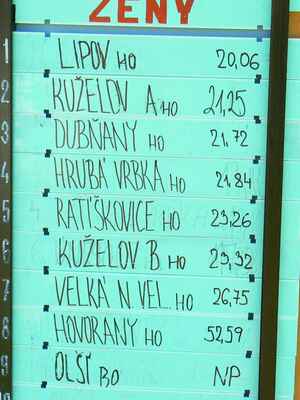 ŽENY
1 LIPOV HO 20,06
2 KUŽELOV A HO 21,25
3 DUBŇANY HO 21,72
4 HRUBÁ VRBKA HO 21,84
5 RATÍŠKOVICE HO 23,26
6 KUŽELOV B HO 23,32
7 VELKÁ N. VEL. HO 26,75
8 HOVORANY HO 52,59
9 OLŠÍ BO NP